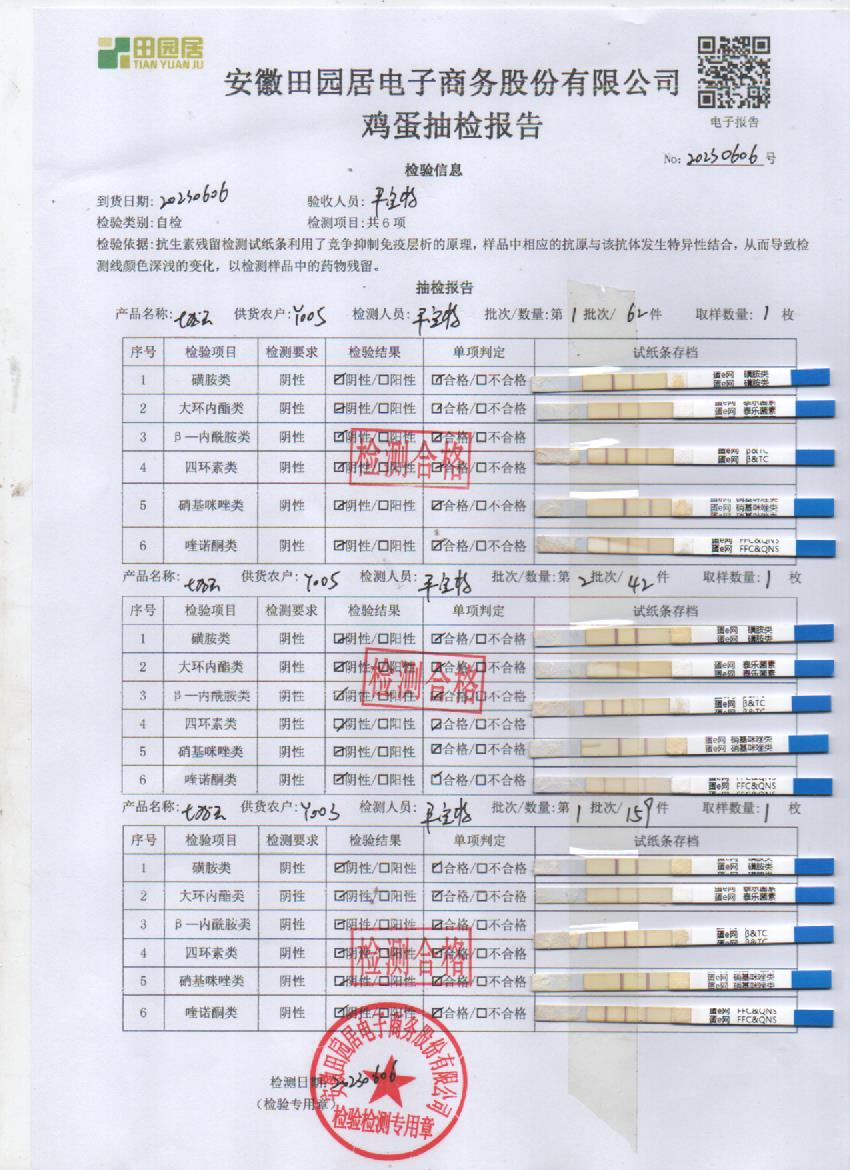 田园居
TIAN YUAN JU
安徽田园居电子商务股份有限公司
鸡蛋抽检报告
电子报告
No: 20230606 号
检验信息
到货日期: 20230606 验收人员:
检验类别:自检 检测项目:共6项
检验依据:抗生素残留检测试纸条利用了竞争抑制免疫层析的原理, 样品中相应的抗原与该抗体发生特异性结合, 从而导致检
测线颜色深浅的变化, 以检测样品中的药物残留。
抽检报告
产品名称: 供货农户:Y005 检测人员: 批次/数量:第 1 批次/ 62 件 取样数量: 1 枚
序号 检验项目 检测要求 检验结果 单项判定 试纸条存档
1 磺胺类 阴性 ☑阴性/☐阳性 ☑合格/☐不合格 蛋e网 磺胺类
2 大环内酯类 阴性 ☑阴性/☐阳性 ☑合格/☐不合格 蛋e网 泰乐菌素
3 β—内酰胺类 阴性 ☑阴性/☐阳性 ☑合格/☐不合格
检测合格
4 四环素类 阴性 ☑阴性/☐阳性 ☑合格/☐不合格 蛋e网 β&TC
5 硝基咪唑类 阴性 ☑阴性/☐阳性 ☑合格/☐不合格 蛋e网 硝基咪唑类
6 喹诺酮类 阴性 ☑阴性/☐阳性 ☑合格/☐不合格 蛋e网 FFC&QNS
产品名称: 供货农户: Y005 检测人员: 批次/数量:第 2 批次/ 42 件 取样数量: 1 枚
序号 检验项目 检测要求 检验结果 单项判定 试纸条存档
1 磺胺类 阴性 ☑阴性/☐阳性 ☑合格/☐不合格 蛋e网 磺胺类
2 大环内酯类 阴性 ☑阴性/☐阳性 ☑合格/☐不合格 蛋e网 泰乐菌素
检测合格
3 β—内酰胺类 阴性 ☑阴性/☐阳性 ☑合格/☐不合格 蛋e网 β&TC
4 四环素类 阴性 ☑阴性/☐阳性 ☑合格/☐不合格
5 硝基咪唑类 阴性 ☑阴性/☐阳性 ☑合格/☐不合格 蛋e网 硝基咪唑类
6 喹诺酮类 阴性 ☑阴性/☐阳性 ☑合格/☐不合格 蛋e网 FFC&QNS
产品名称: 供货农户: Y003 检测人员: 批次/数量:第 1 批次/ 159 件 取样数量: 1 枚
序号 检验项目 检测要求 检验结果 单项判定 试纸条存档
1 磺胺类 阴性 ☑阴性/☐阳性 ☑合格/☐不合格 蛋e网 磺胺类
2 大环内酯类 阴性 ☑阴性/☐阳性 ☑合格/☐不合格 蛋e网 泰乐菌素
3 β—内酰胺类 阴性 ☑阴性/☐阳性 ☑合格/☐不合格 蛋e网 β&TC
检测合格
4 四环素类 阴性 ☑阴性/☐阳性 ☑合格/☐不合格
5 硝基咪唑类 阴性 ☑阴性/☐阳性 ☑合格/☐不合格 蛋e网 硝基咪唑类
6 喹诺酮类 阴性 ☑阴性/☐阳性 ☑合格/☐不合格 蛋e网 FFC&QNS
安徽田园居电子商务股份有限公司
检测日期: 20230606
(检验专用章)
检验检测专用章